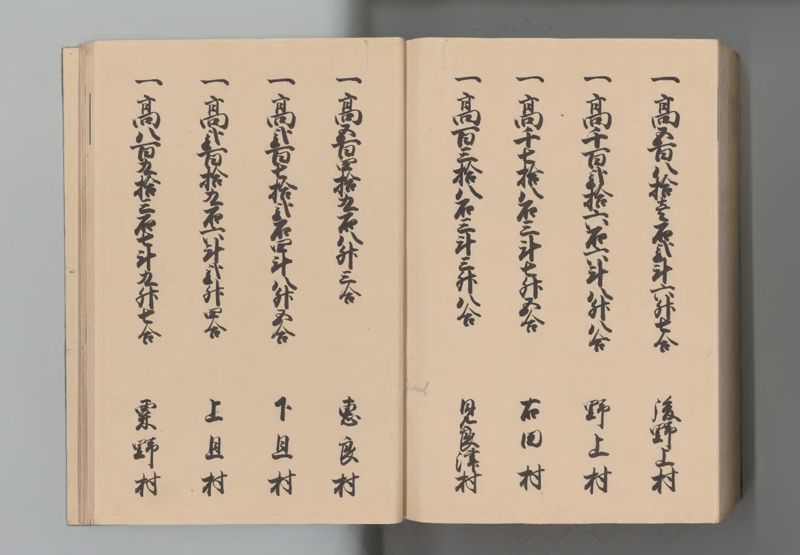 一高五百八拾壱石弐斗六升七合 後野上村
一高千百弐拾六石六斗八升八合 野上村
一高千七拾八石三斗七升五合 右田村
一高百三拾八石三斗三升八合 見良津村
一高五百四拾五石八升三合 恵良村
一高弐百七拾弐石四斗八升五合 下且村
一高弐百拾五石六斗弐升四合 上且村
一高八百五拾三石七斗五升七合 粟野村